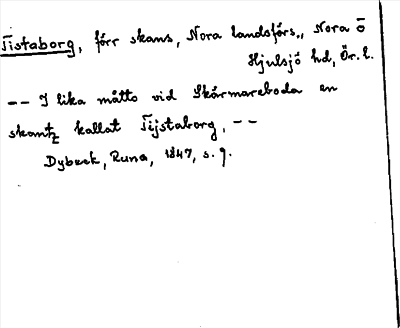 Tistaborg, förr skans, Nora landsförs., Nora o
Hjulsjö hd, Ör. l.
-- I lika måtto vid Skärmareboda en
skantz kallat Tijstaborg, --
Dybeck, Runa, 1847, s. 9.